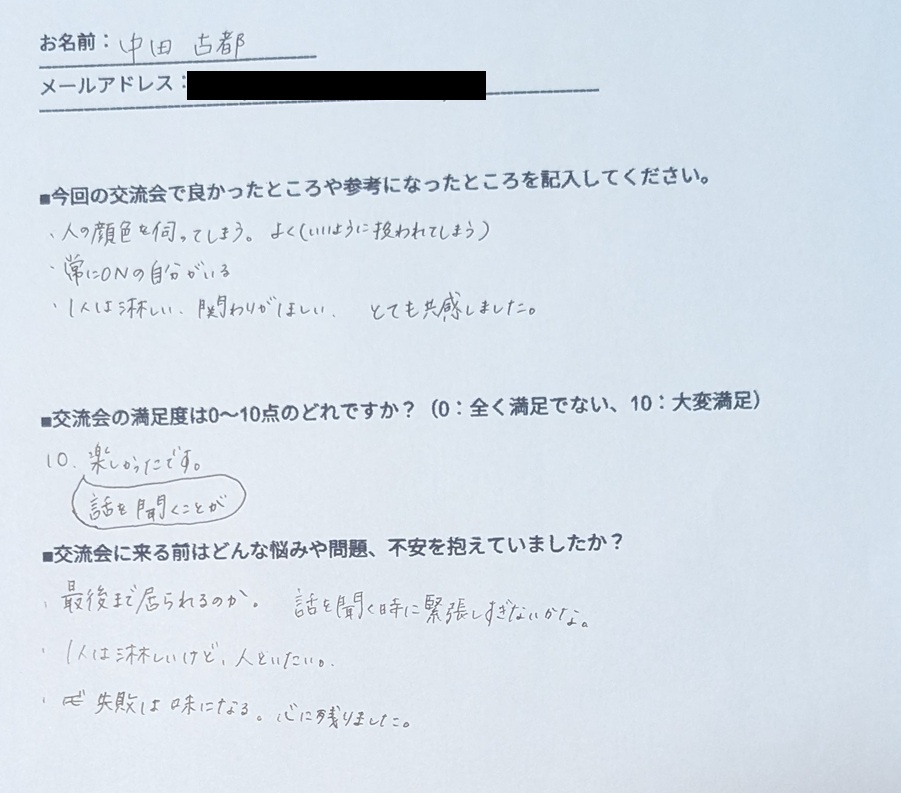 お名前：中田 古都
メールアドレス：
■今回の交流会で良かったところや参考になったところを記入してください。
・人の顔色を伺ってしまう。よく(いいように扱われてしまう)
・常にONの自分がいる
・1人は淋しい、関わりがほしい、 とても共感しました。
■交流会の満足度は0〜10点のどれですか？（0：全く満足でない、10：大変満足）
10、楽しかったです。
話を聞くことが
■交流会に来る前はどんな悩みや問題、不安を抱えていましたか？
・最後まで居られるのか。 話を聞く時に緊張しすぎないかな。
・1人は淋しいけど、人といたい。
・失敗は味になる。心に残りました。